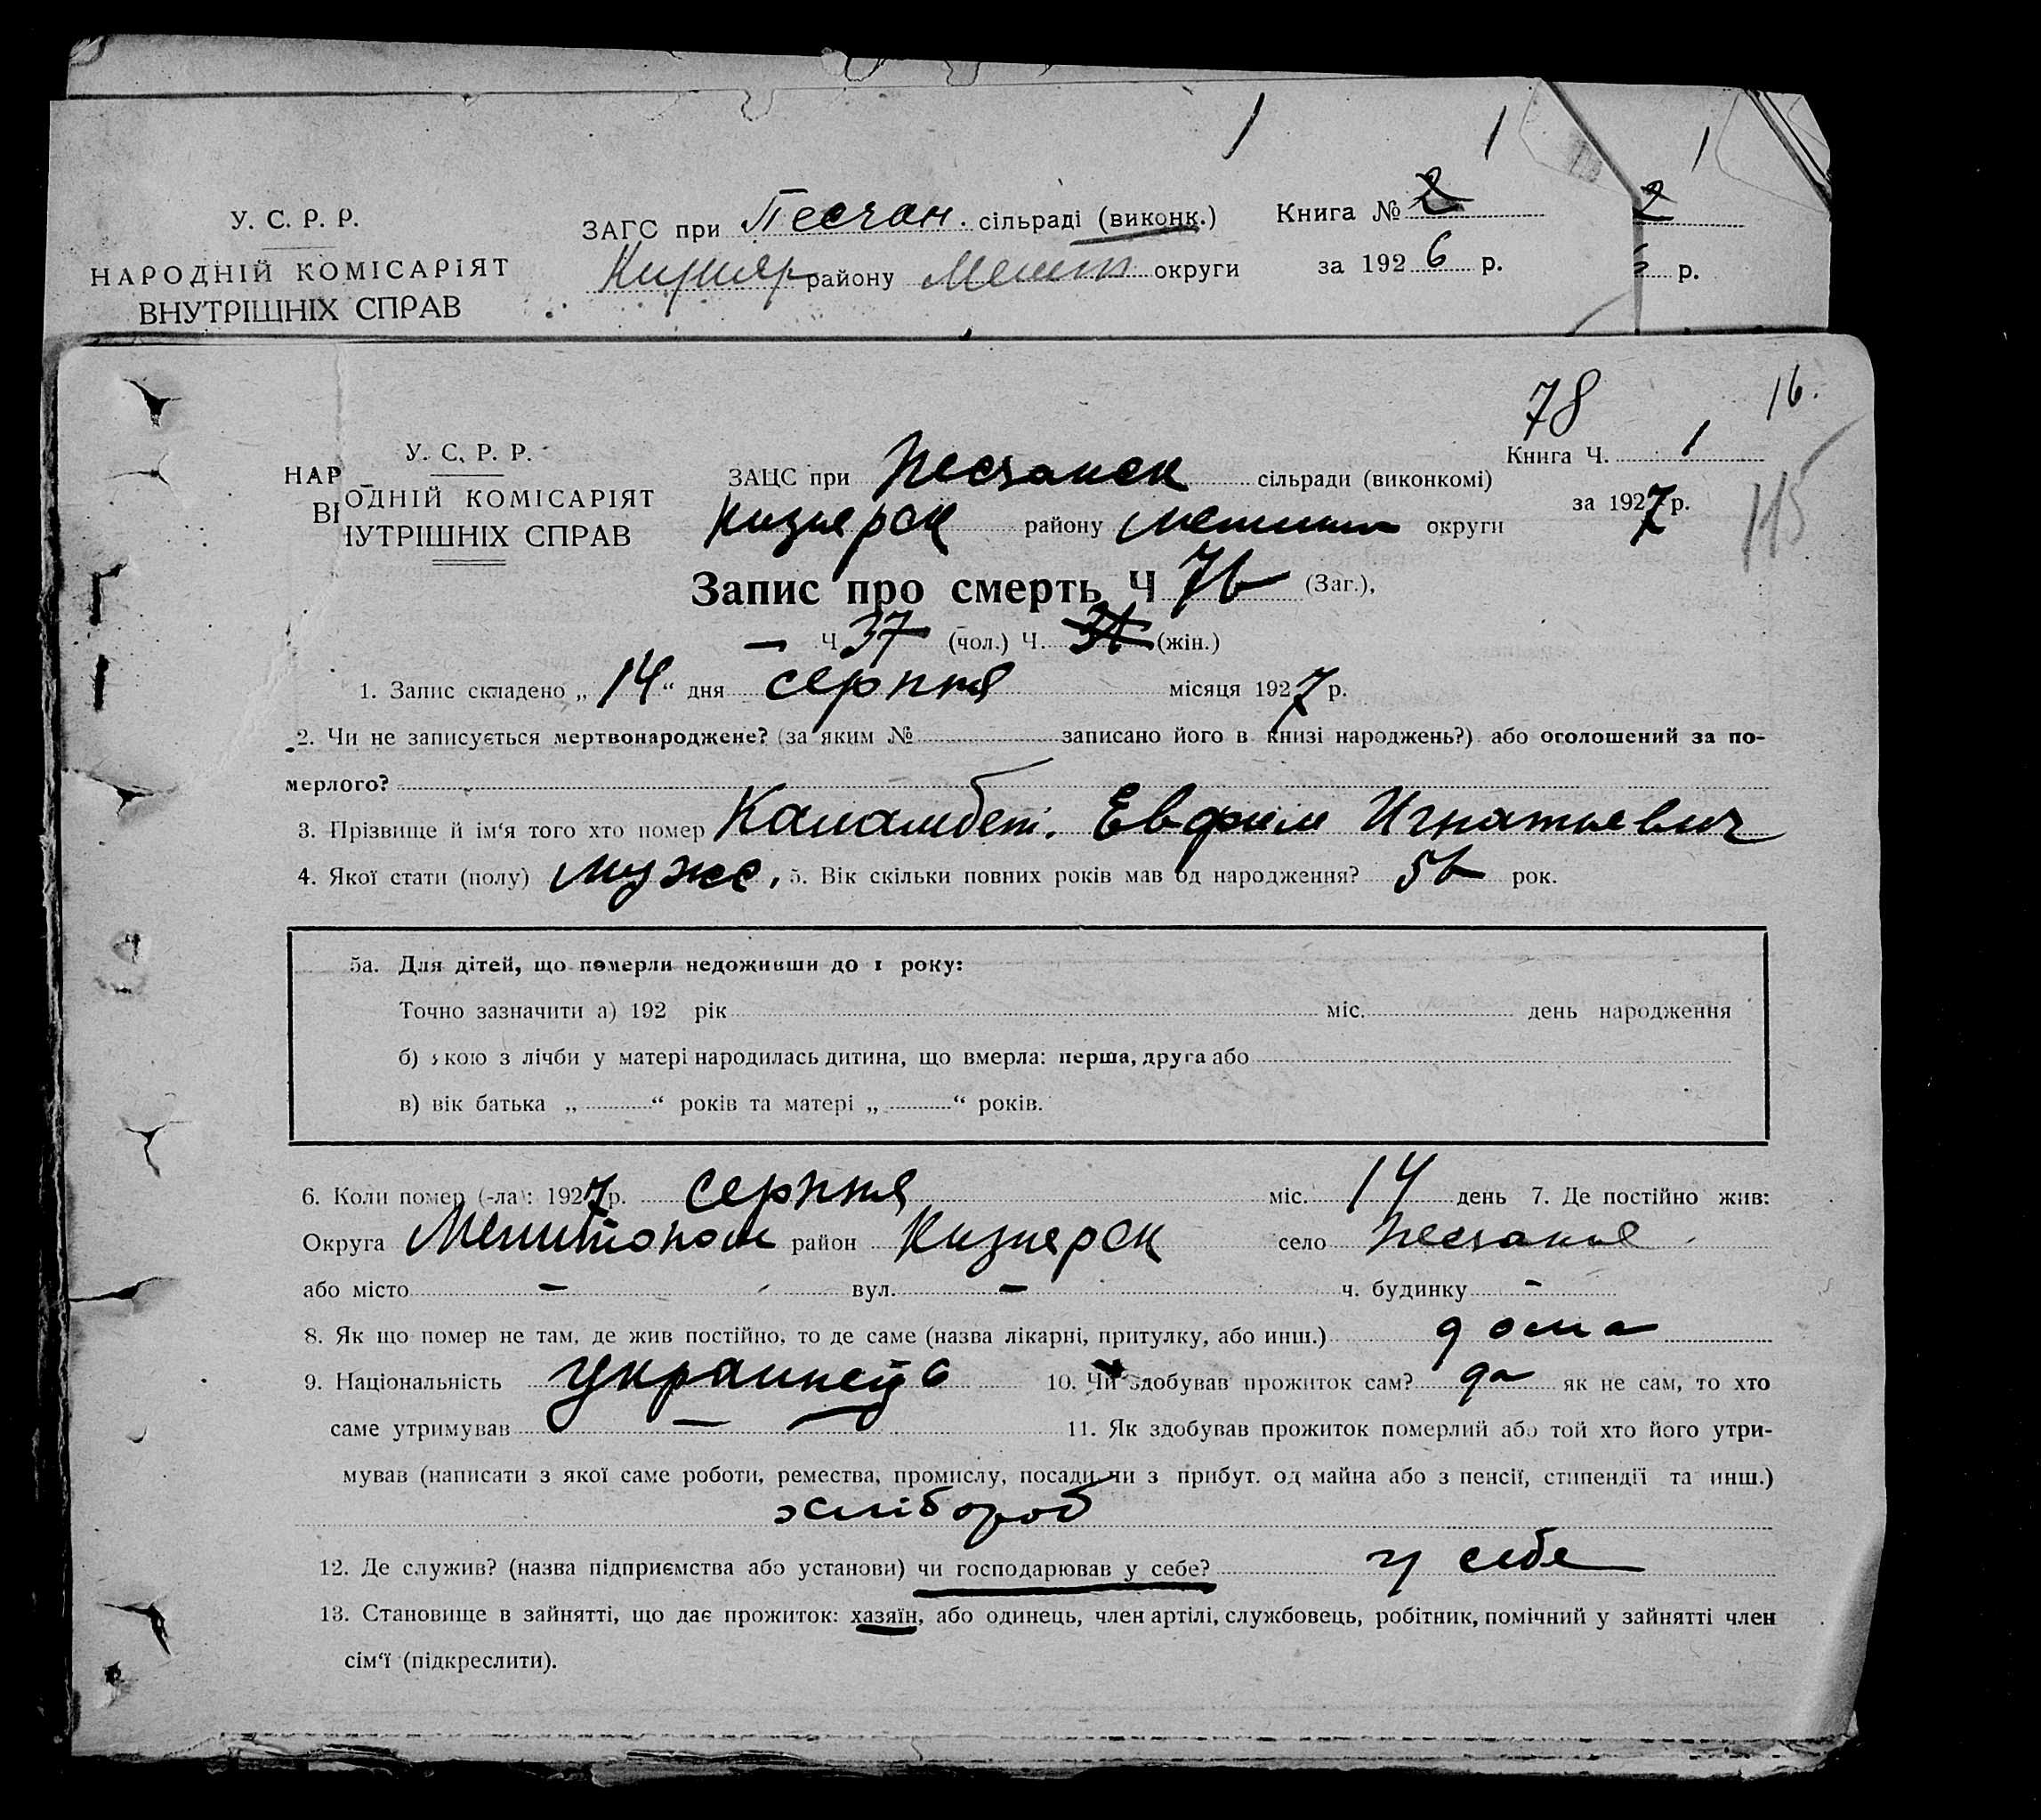 1 1 1
У. С. Р. Р.
НАРОДНІЙ КОМІСАРІЯТ
ВНУТРІШНІХ СПРАВ
ЗАГС при Песчан. сільраді (виконк.)
Книга № 2
2
району Мелит округи
за 1926 р.
р.
78
16.
115
У. С. Р. Р.
НАРОДНІЙ КОМІСАРІЯТ
ВНУТРІШНІХ СПРАВ
ЗАЦС при Песчанск сільради (виконкомі)
Книга Ч. 1
Кизиярск району округи
за 1927 р.
Запис про смерть Ч 76 (Заг.),
— Ч 37 (чол.) Ч. (жін.)
1. Запис складено „14“ дня серпня місяця 1927 р.
2. Чи не записується мертвонароджене? (за яким № записано його в книзі народжень?) або оголошений за по-
мерлого?
3. Прізвище й ім'я того хто помер Евфим Игнатьевич
4. Якої стати (полу) мужс. 5. Вік скільки повних років мав од народження? 56 рок.
5а. Для дітей, що померли недоживши до 1 року:
Точно зазначити а) 192 рік міс. день народження
б) якою з лічби у матері народилась дитина, що вмерла: перша, друга або
в) вік батька „ “ років та матері „ “ років.
6. Коли помер (-ла): 1927 р. серпня міс. 14 день 7. Де постійно жив:
Округа Мелитопол район Кизиярск село Песчаное
або місто — вул. — ч. будинку -
8. Як що помер не там, де жив постійно, то де саме (назва лікарні, притулку, або инш.) дома
9. Національність 10. Чи здобував прожиток сам? да як не сам, то хто
саме утримував — 11. Як здобував прожиток померлий або той хто його утри-
мував (написати з якої саме роботи, ремества, промислу, посади чи з прибут. од майна або з пенсії, стипендії та инш.)
хлібороб
12. Де служив? (назва підприємства або установи) чи господарював у себе? у себе
13. Становище в зайнятті, що дає прожиток: хазяїн, або одинець, член артілі, службовець, робітник, помічний у зайнятті член
сім'ї (підкреслити).